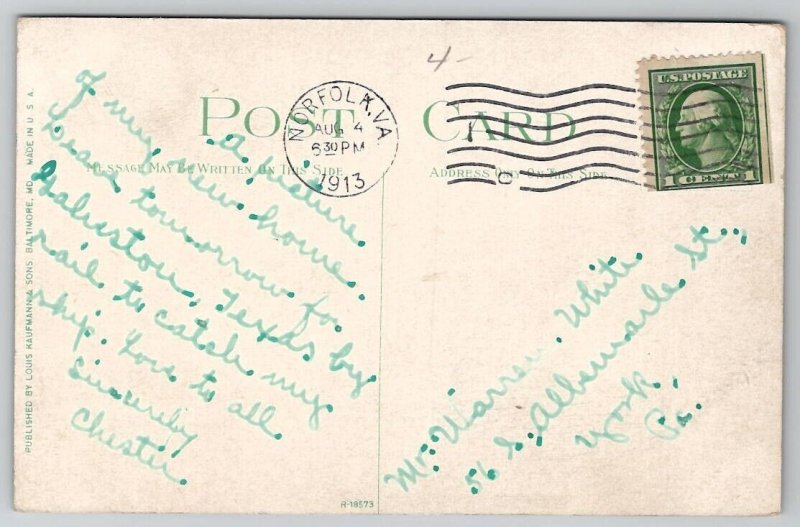 4-
POST CARD
NORFOLK, VA.
AUG 4
6 30 PM
1913
C
U.S. POSTAGE
1 CENT 1
MESSAGE MAY BE WRITTEN ON THIS SIDE
ADDRESS ONLY ON THIS SIDE
a picture
of my new home.
Leave tomorrow for
Galveston, Texas by
rail to catch my
ship. Love to all.
Sincerely
Chester.
Mr. Warren White
56 S. Albemarle St.,
York,
Pa.
PUBLISHED BY LOUIS KAUFMANN & SONS, BALTIMORE, MD. MADE IN U.S.A.
R-18573